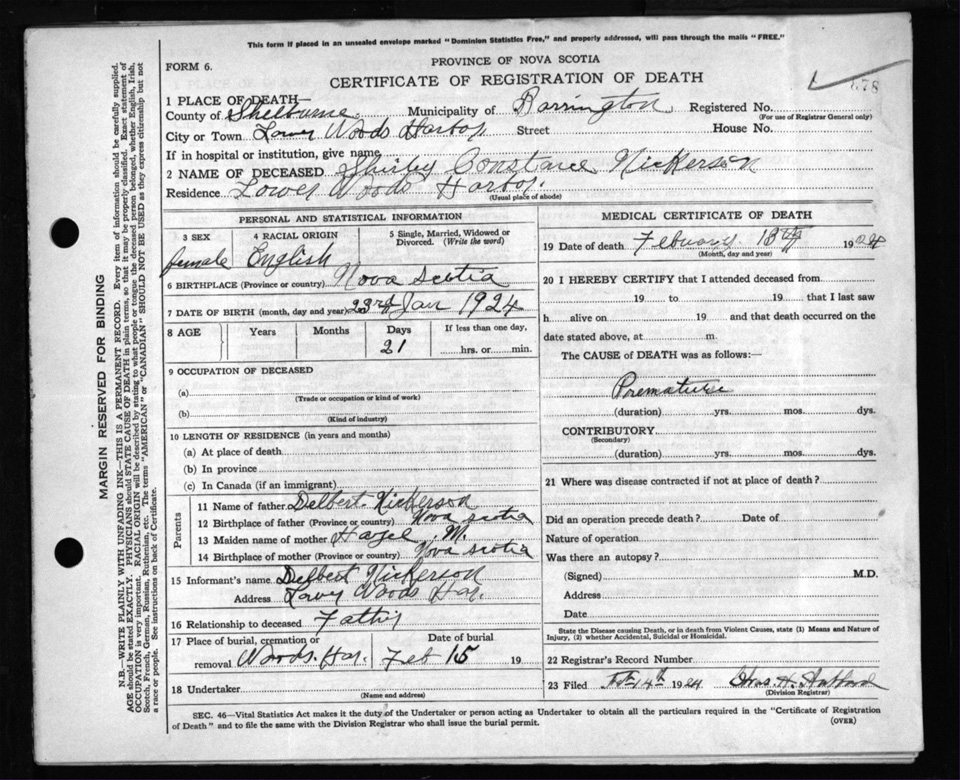 This form if placed in an unsealed envelope marked "Dominion Statistics Free," and properly addressed, will pass through the mails "FREE."
FORM 6.
PROVINCE OF NOVA SCOTIA
CERTIFICATE OF REGISTRATION OF DEATH
1 PLACE OF DEATH
County of Shelburne Municipality of Barrington Registered No.
(For use of Registrar General only)
City or Town Lower Woods Harbor Street House No.
If in hospital or institution, give name
2 NAME OF DECEASED Shirley Constance Nickerson
Residence Lower Woods Harbor.
(Usual place of abode)
MARGIN RESERVED FOR BINDING
N.B.—WRITE PLAINLY WITH UNFADING INK—THIS IS A PERMANENT RECORD. Every item of information should be carefully supplied.
AGE should be stated EXACTLY. PHYSICIANS should STATE CAUSE OF DEATH in plain terms, so that it may be properly classified. Exact statement of
OCCUPATION is very important. RACIAL ORIGIN will be described by stating to what people or tongue the deceased person belonged, whether English, Irish,
Scotch, French, German, Russian, Ruthenian, etc. The terms "AMERICAN" or "CANADIAN" SHOULD NOT BE USED as they express citizenship but not
a race or people. See instructions on back of Certificate.
PERSONAL AND STATISTICAL INFORMATION
3 SEX 4 RACIAL ORIGIN 5 Single, Married, Widowed or
Divorced. (Write the word)
female English
6 BIRTHPLACE (Province or country) Nova Scotia
7 DATE OF BIRTH (month, day and year) 23rd Jan 1924
8 AGE Years Months Days If less than one day,
21 hrs. or min.
9 OCCUPATION OF DECEASED
(a)
(Trade or occupation or kind of work)
(b)
(Kind of industry)
10 LENGTH OF RESIDENCE (in years and months)
(a) At place of death
(b) In province
(c) In Canada (if an immigrant)
Parents
11 Name of father Delbert Nickerson
12 Birthplace of father (Province or country) Nova scotia
13 Maiden name of mother Hazel M.
14 Birthplace of mother (Province or country) Nova scotia
15 Informant's name Delbert Nickerson
Address Lower Woods Har.
16 Relationship to deceased Father
17 Place of burial, cremation or Date of burial
removal Woods Har. Feb 15 19
18 Undertaker
(Name and address)
MEDICAL CERTIFICATE OF DEATH
19 Date of death Febuary 13th 1924
(Month, day and year)
20 I HEREBY CERTIFY that I attended deceased from
19 to 19 that I last saw
h alive on 19 and that death occurred on the
date stated above, at m.
The CAUSE of DEATH was as follows:—
Premature
(duration) yrs. mos. dys.
CONTRIBUTORY
(Secondary)
(duration) yrs. mos. dys.
21 Where was disease contracted if not at place of death?
Did an operation precede death? Date of
Nature of operation
Was there an autopsy?
(Signed) M.D.
Address
Date
State the Disease causing Death, or in death from Violent Causes, state (1) Means and Nature of
Injury, (2) whether Accidental, Suicidal or Homicidal.
22 Registrar's Record Number
23 Filed Feb 14th 1924 Chas. H.
(Division Registrar)
SEC. 46—Vital Statistics Act makes it the duty of the Undertaker or person acting as Undertaker to obtain all the particulars required in the "Certificate of Registration
of Death" and to file the same with the Division Registrar who shall issue the burial permit.
(OVER)